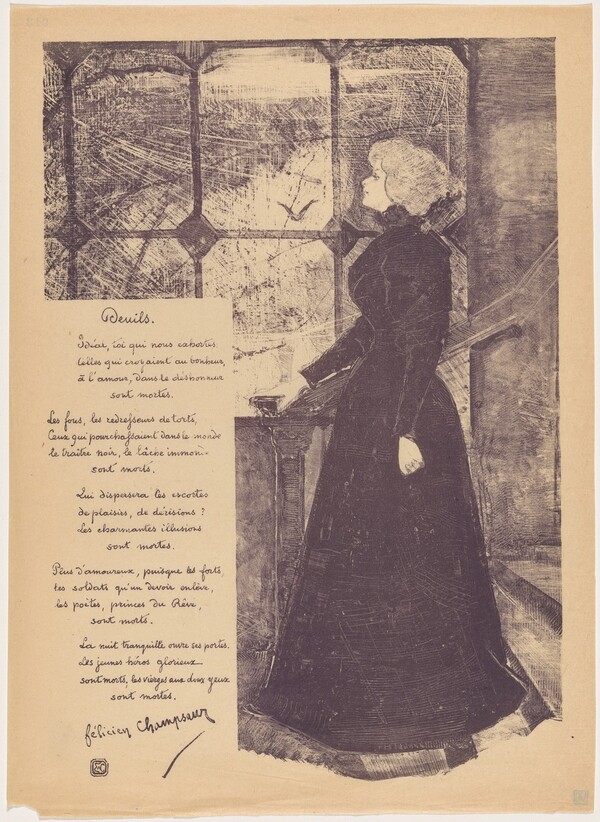 Deuils.
Idéal, toi qui nous exhortes
Celles qui croyaient au bonheur,
à l'amour, dans le déshonneur
sont mortes.
Les fous, les redresseurs de torts,
Ceux qui pourchassaient dans le monde
le traître noir, le lâche immon-
sont morts.
Qui dispersera les escortes
de plaisirs, de dérisions ?
Les charmantes illusions
sont mortes.
Plus d'amoureux, puisque les forts,
les soldats qu'un devoir enlève,
les poètes, princes du Rêve,
sont morts.
La nuit tranquille ouvre ses portes.
Les jeunes héros glorieux
sont morts, les vierges aux doux yeux
sont mortes.
félicien Champsaur